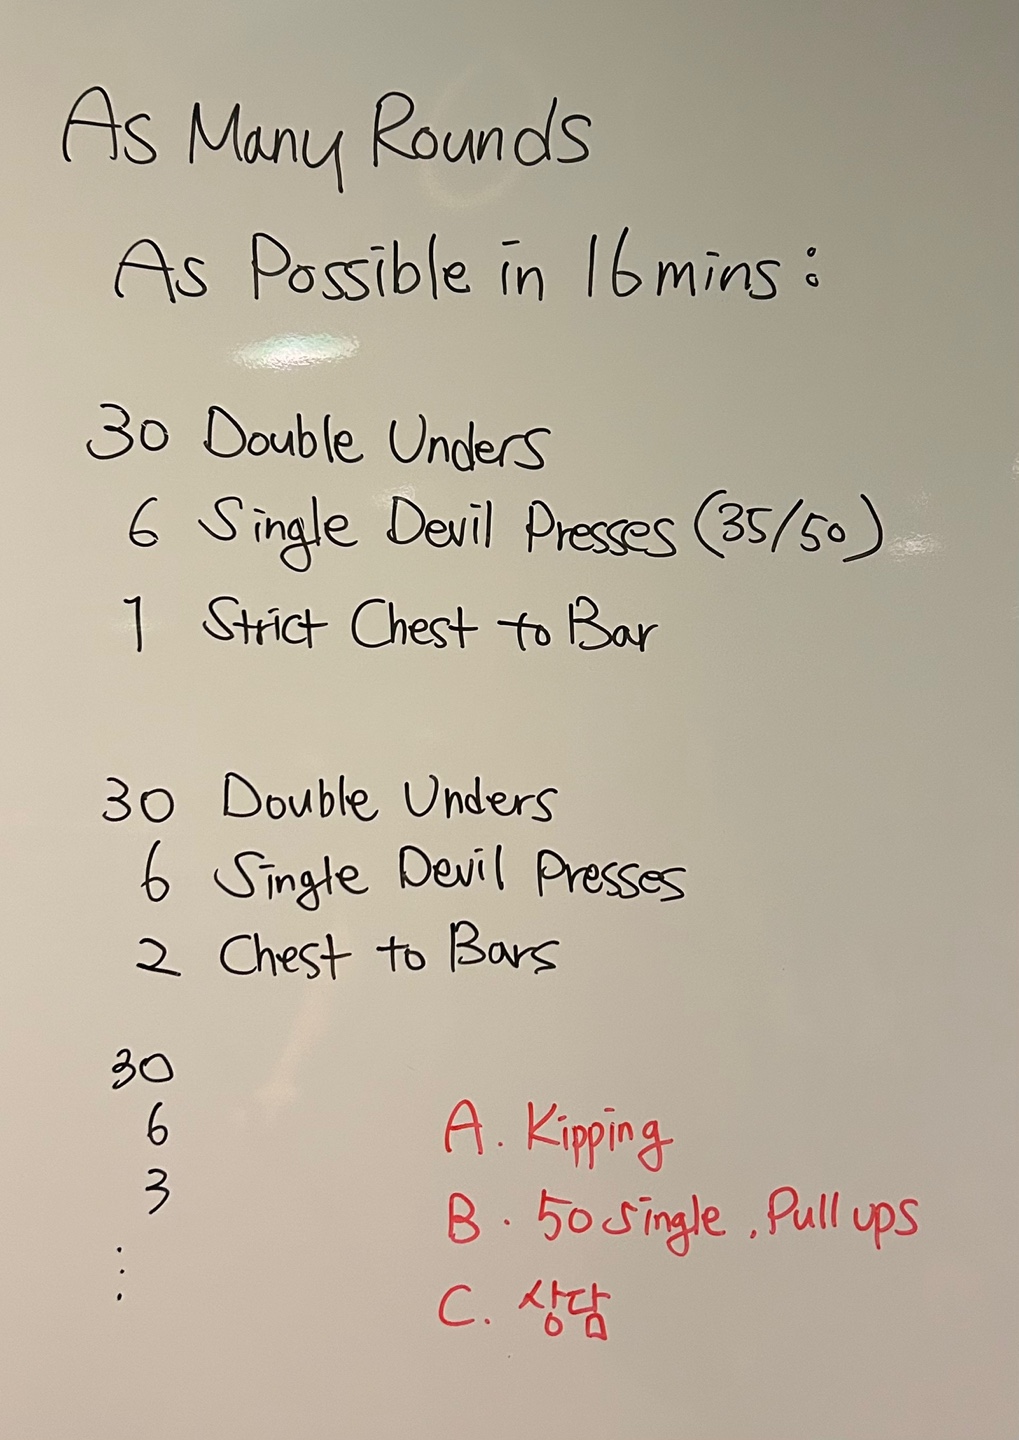 As Many Rounds
As Possible in 16 mins :
30 Double Unders
6 Single Devil Presses (35/50)
1 Strict Chest to Bar
30 Double Unders
6 Single Devil Presses
2 Chest to Bars
30
6
3
⋮
A. Kipping
B. 50 single, Pull ups
C. 상담